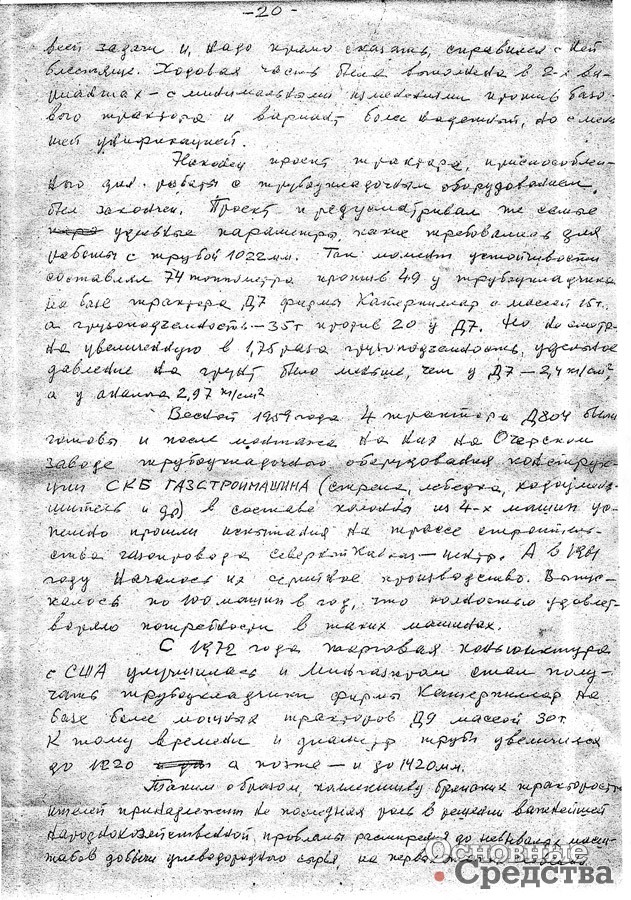 -20-
всей задачи и, надо прямо сказать, справился с ней
блестяще. Ходовая часть была выполнена в 2-х ва-
риантах - с минимальными изменениями против базо-
вого трактора и вариант более надежный, но с мень-
шей унификацией.
Наконец проект трактора, приспособлен-
ного для работы с трубоукладочным оборудованием,
был закончен. Проект предусматривал же самые
удельные параметры, какие требовались для
работы с трубой 1022мм. Так момент устойчивости
составлял 74 тоннометра против 49 у трубоукладчика
на базе трактора Д7 фирмы Катерпиллар с массой 15т.
а грузоподъемность - 35т против 20 у Д7. Но несмотря
на увеличенную в 1,75 раза грузоподъемность, удельное
давление на грунт было меньше, чем у Д7 - 2,4 кг/см²,
а у аналога 2,97 кг/см²
Весной 1959 года 4 трактора Д804 были
готовы и после монтажа на них на Очерском
заводе трубоукладочного оборудования конструк-
ции СКБ ГАЗСТРОЙМАШИНА (стрела, лебедка,
и др) в составе колонны из 4-х машин ус-
пешно прошли испытания на трассе строитель-
ства газопровода северный Кавказ - центр. А в 1961
году началось их серийное производство. Выпус-
калось по 100 машин в год, что полностью удовлет-
воряло потребности в таких машинах.
С 1972 года торговая конъюнктура
с США улучшилась и Мингазпром стал полу-
чать трубоукладчики фирмы Катерпиллар на
базе более мощных тракторов Д9 массой 30т.
К тому времени и диаметр трубы увеличился
до 1220 а позже - и до 1420мм.
Таким образом, коллективу брянских тракторостро-
ителей принадлежит не последняя роль в решении важнейшей
народнохозяйственной проблемы расширения до небывалых масш-
табов добычи углеводородного сырья, на
Основные
Средства